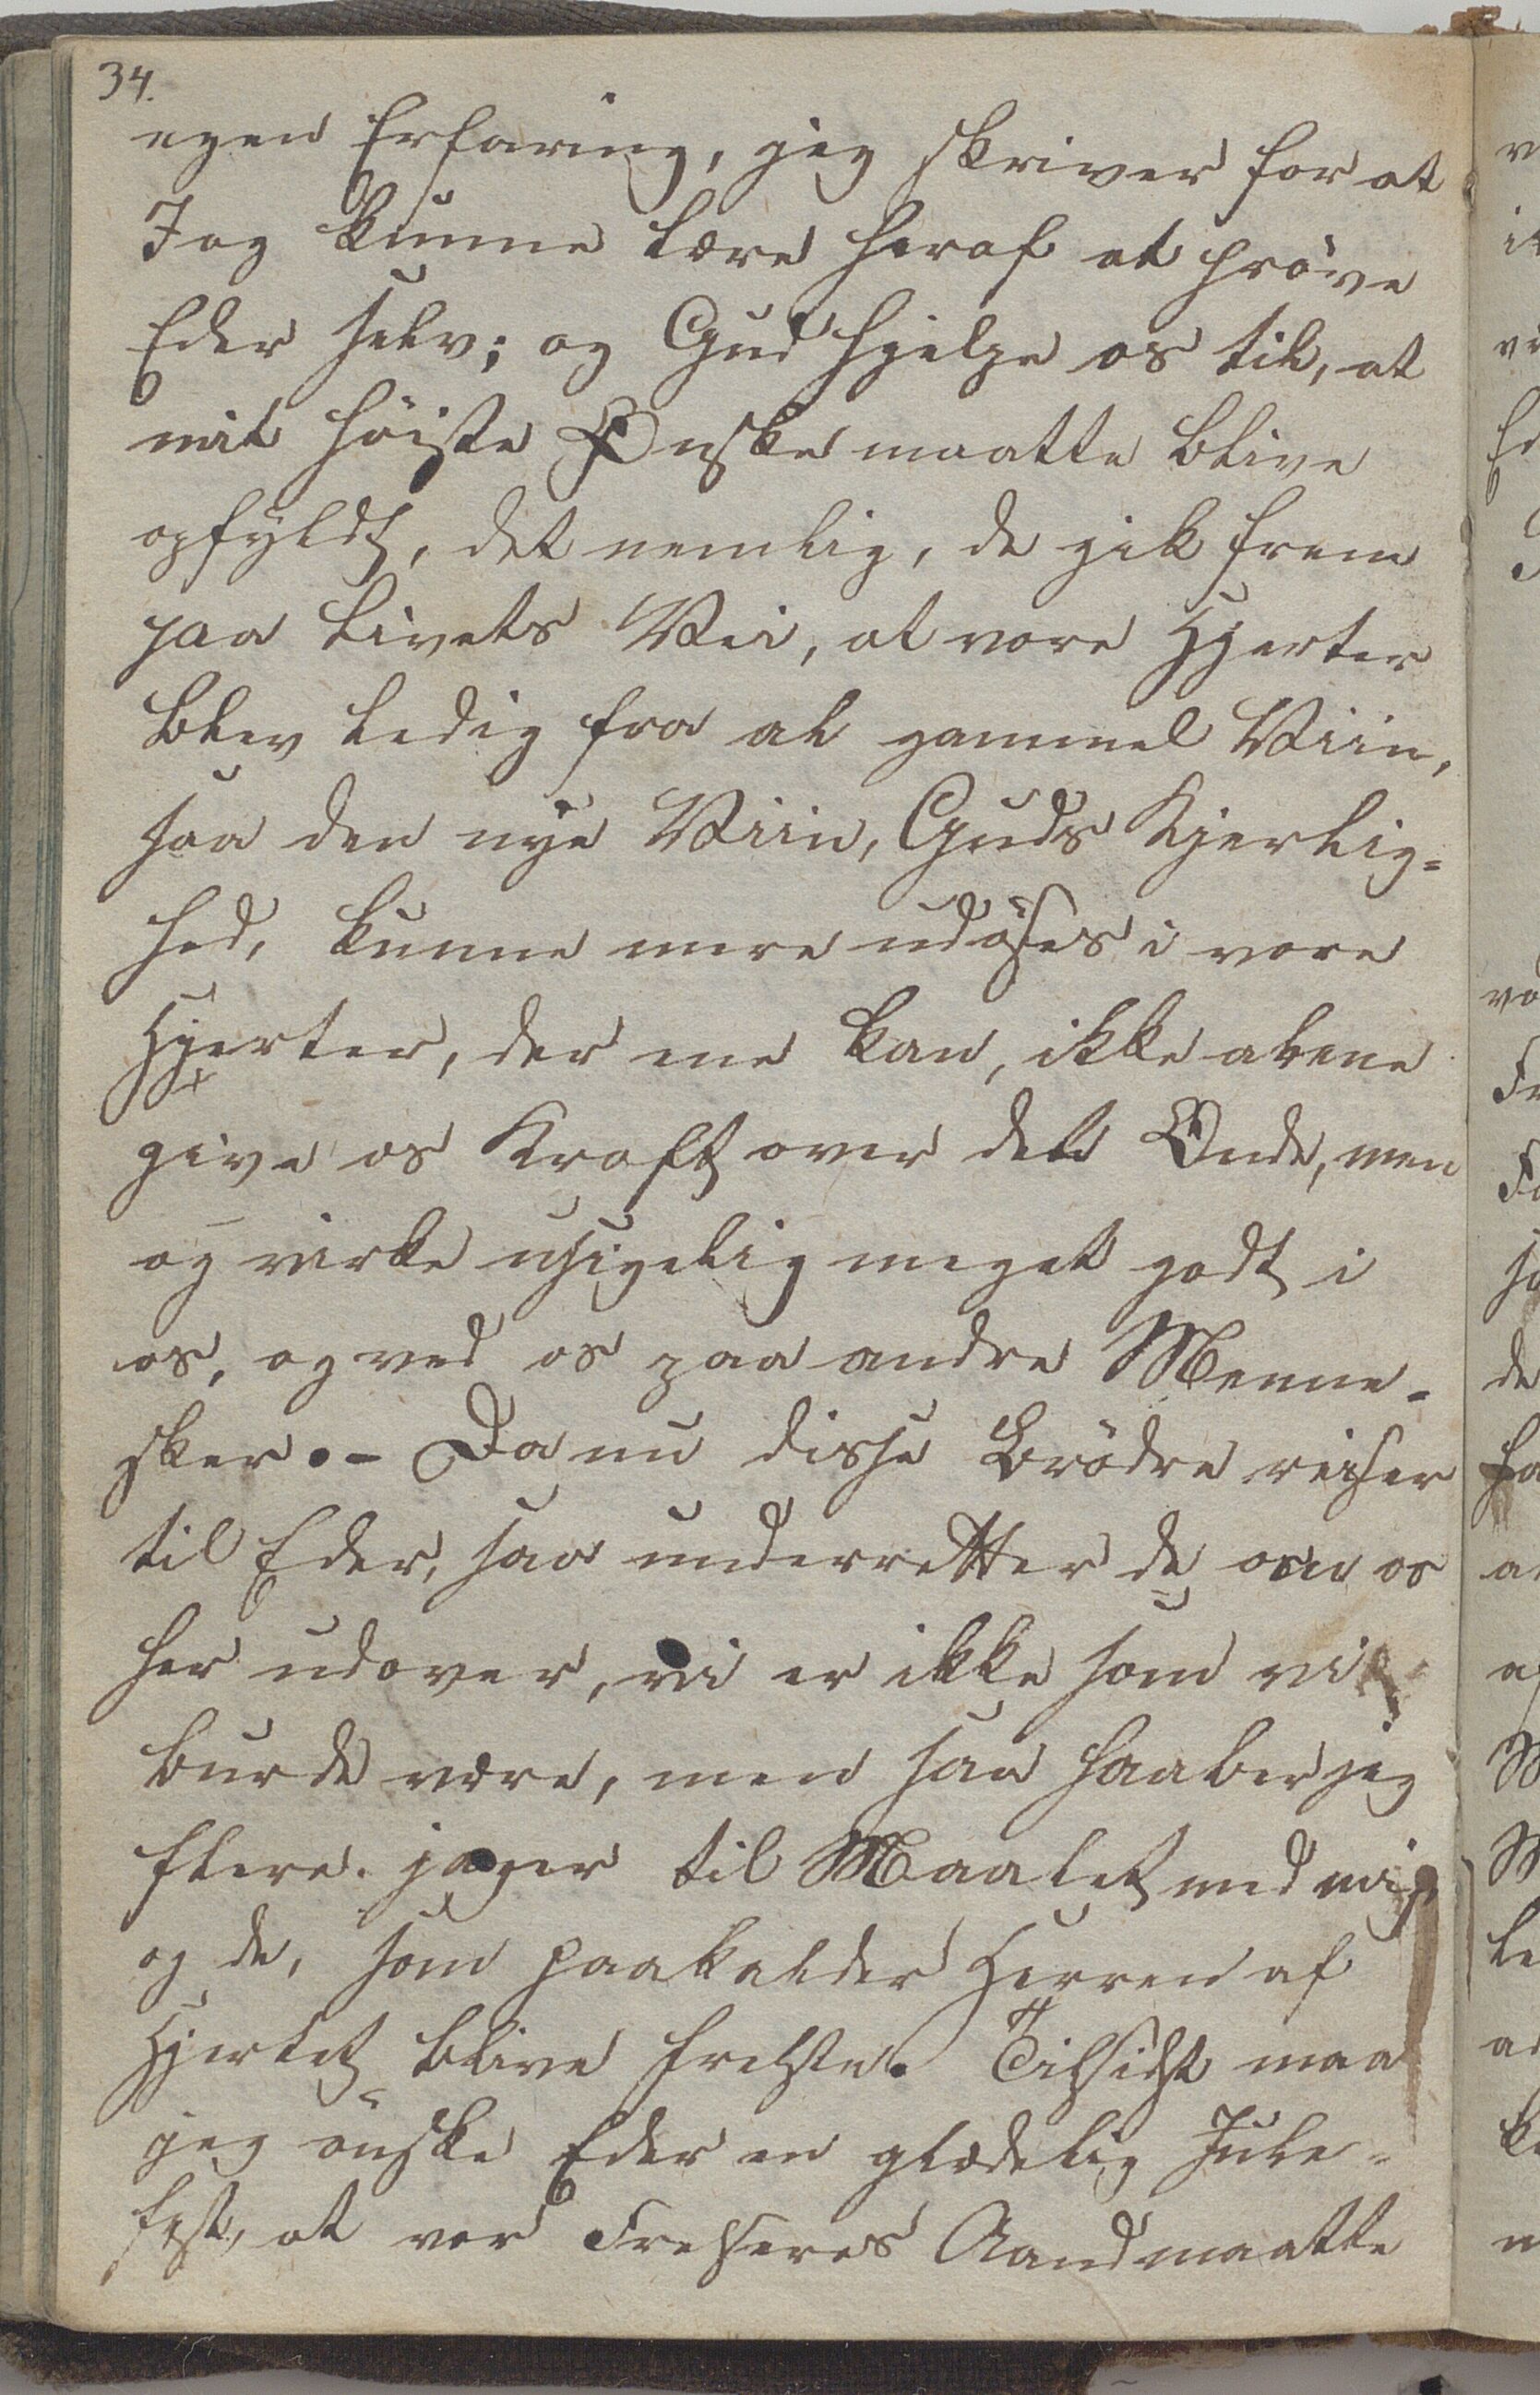 34.
egen Erfaring, jeg skriver for at
I og kunne lære heraf at pröve
Eder selv; og Gud hjelpe os til, at
mit höiste Ønske maatte blive
opfyldt, det nemlig, de gik frem
paa Livets Vei, at vore Hjerter
blev ledig fra al gammel Viin,
saa den nye Viin, Guds Kjerlig-
hed, kunne mere udöses i vore
Hjerter, der ene kan, ikke alene
give os Kraft over det Onde, men
og virke usigelig meget godt i
os, og ved os paa andre Menne-
sker. - Da nu disse Brödre reiser
til Eder, saa underretter de om os
her udover, vi er ikke som vi
burde være, men saa haaber jeg
flere jager til Maalet med mig,
og de, som paakalder Herren af
Hjertet blive frelste. Tilsidst maa
jeg önske Eder en glædelig Jule-
fest, at vor Frelseres Aand maatte